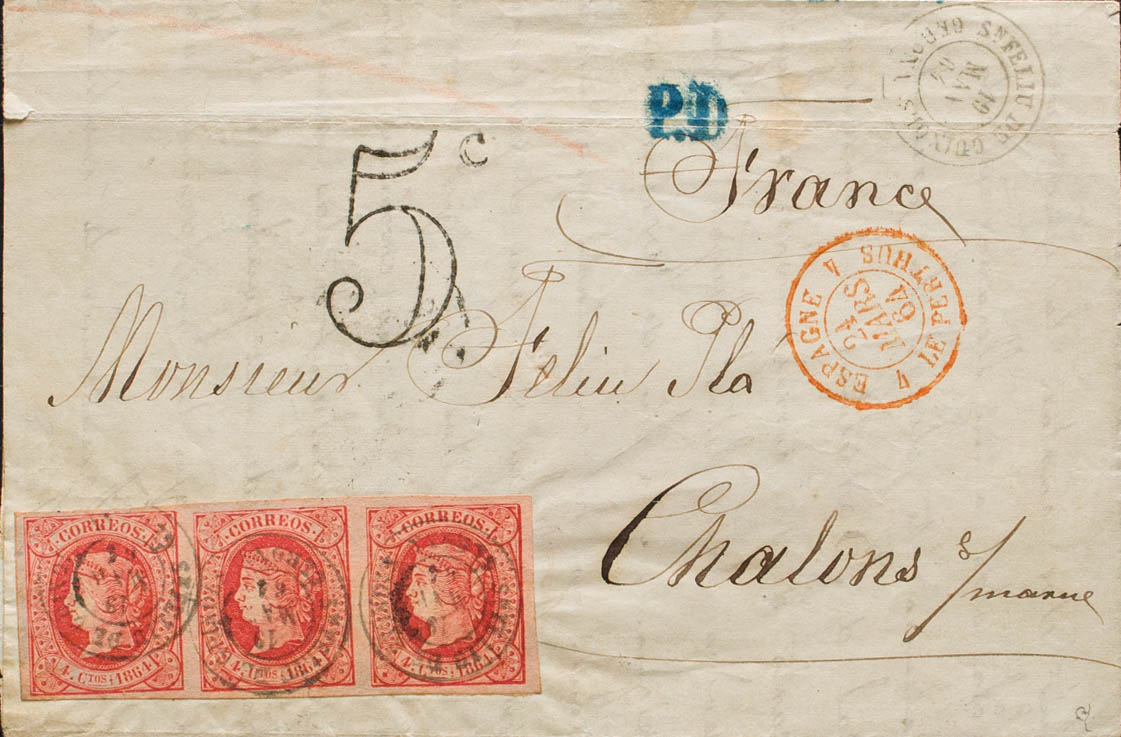 SNFELIU DE GUIXOLS GERONA
19 MAR 64
PD
5c
France
ESPAGNE 4 LE PERTHUS 4
24 MARS 64
Monsieur Feliu Pla
Chalons s/marne
CORREOS
4 CTOS 1864
CORREOS
4 CTOS 1864
CORREOS
4 CTOS 1864